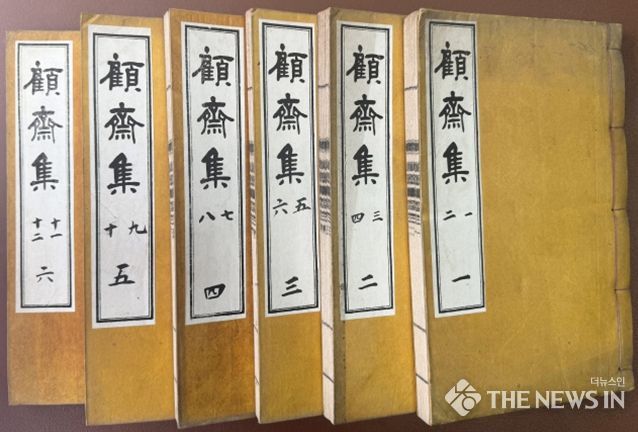 顧齋集
一
二
一
顧齋集
三
四
二
顧齋集
五
六
三
顧齋集
七
八
四
顧齋集
九
十
五
顧齋集
十一
十二
六
더뉴스인
THE NEWS IN